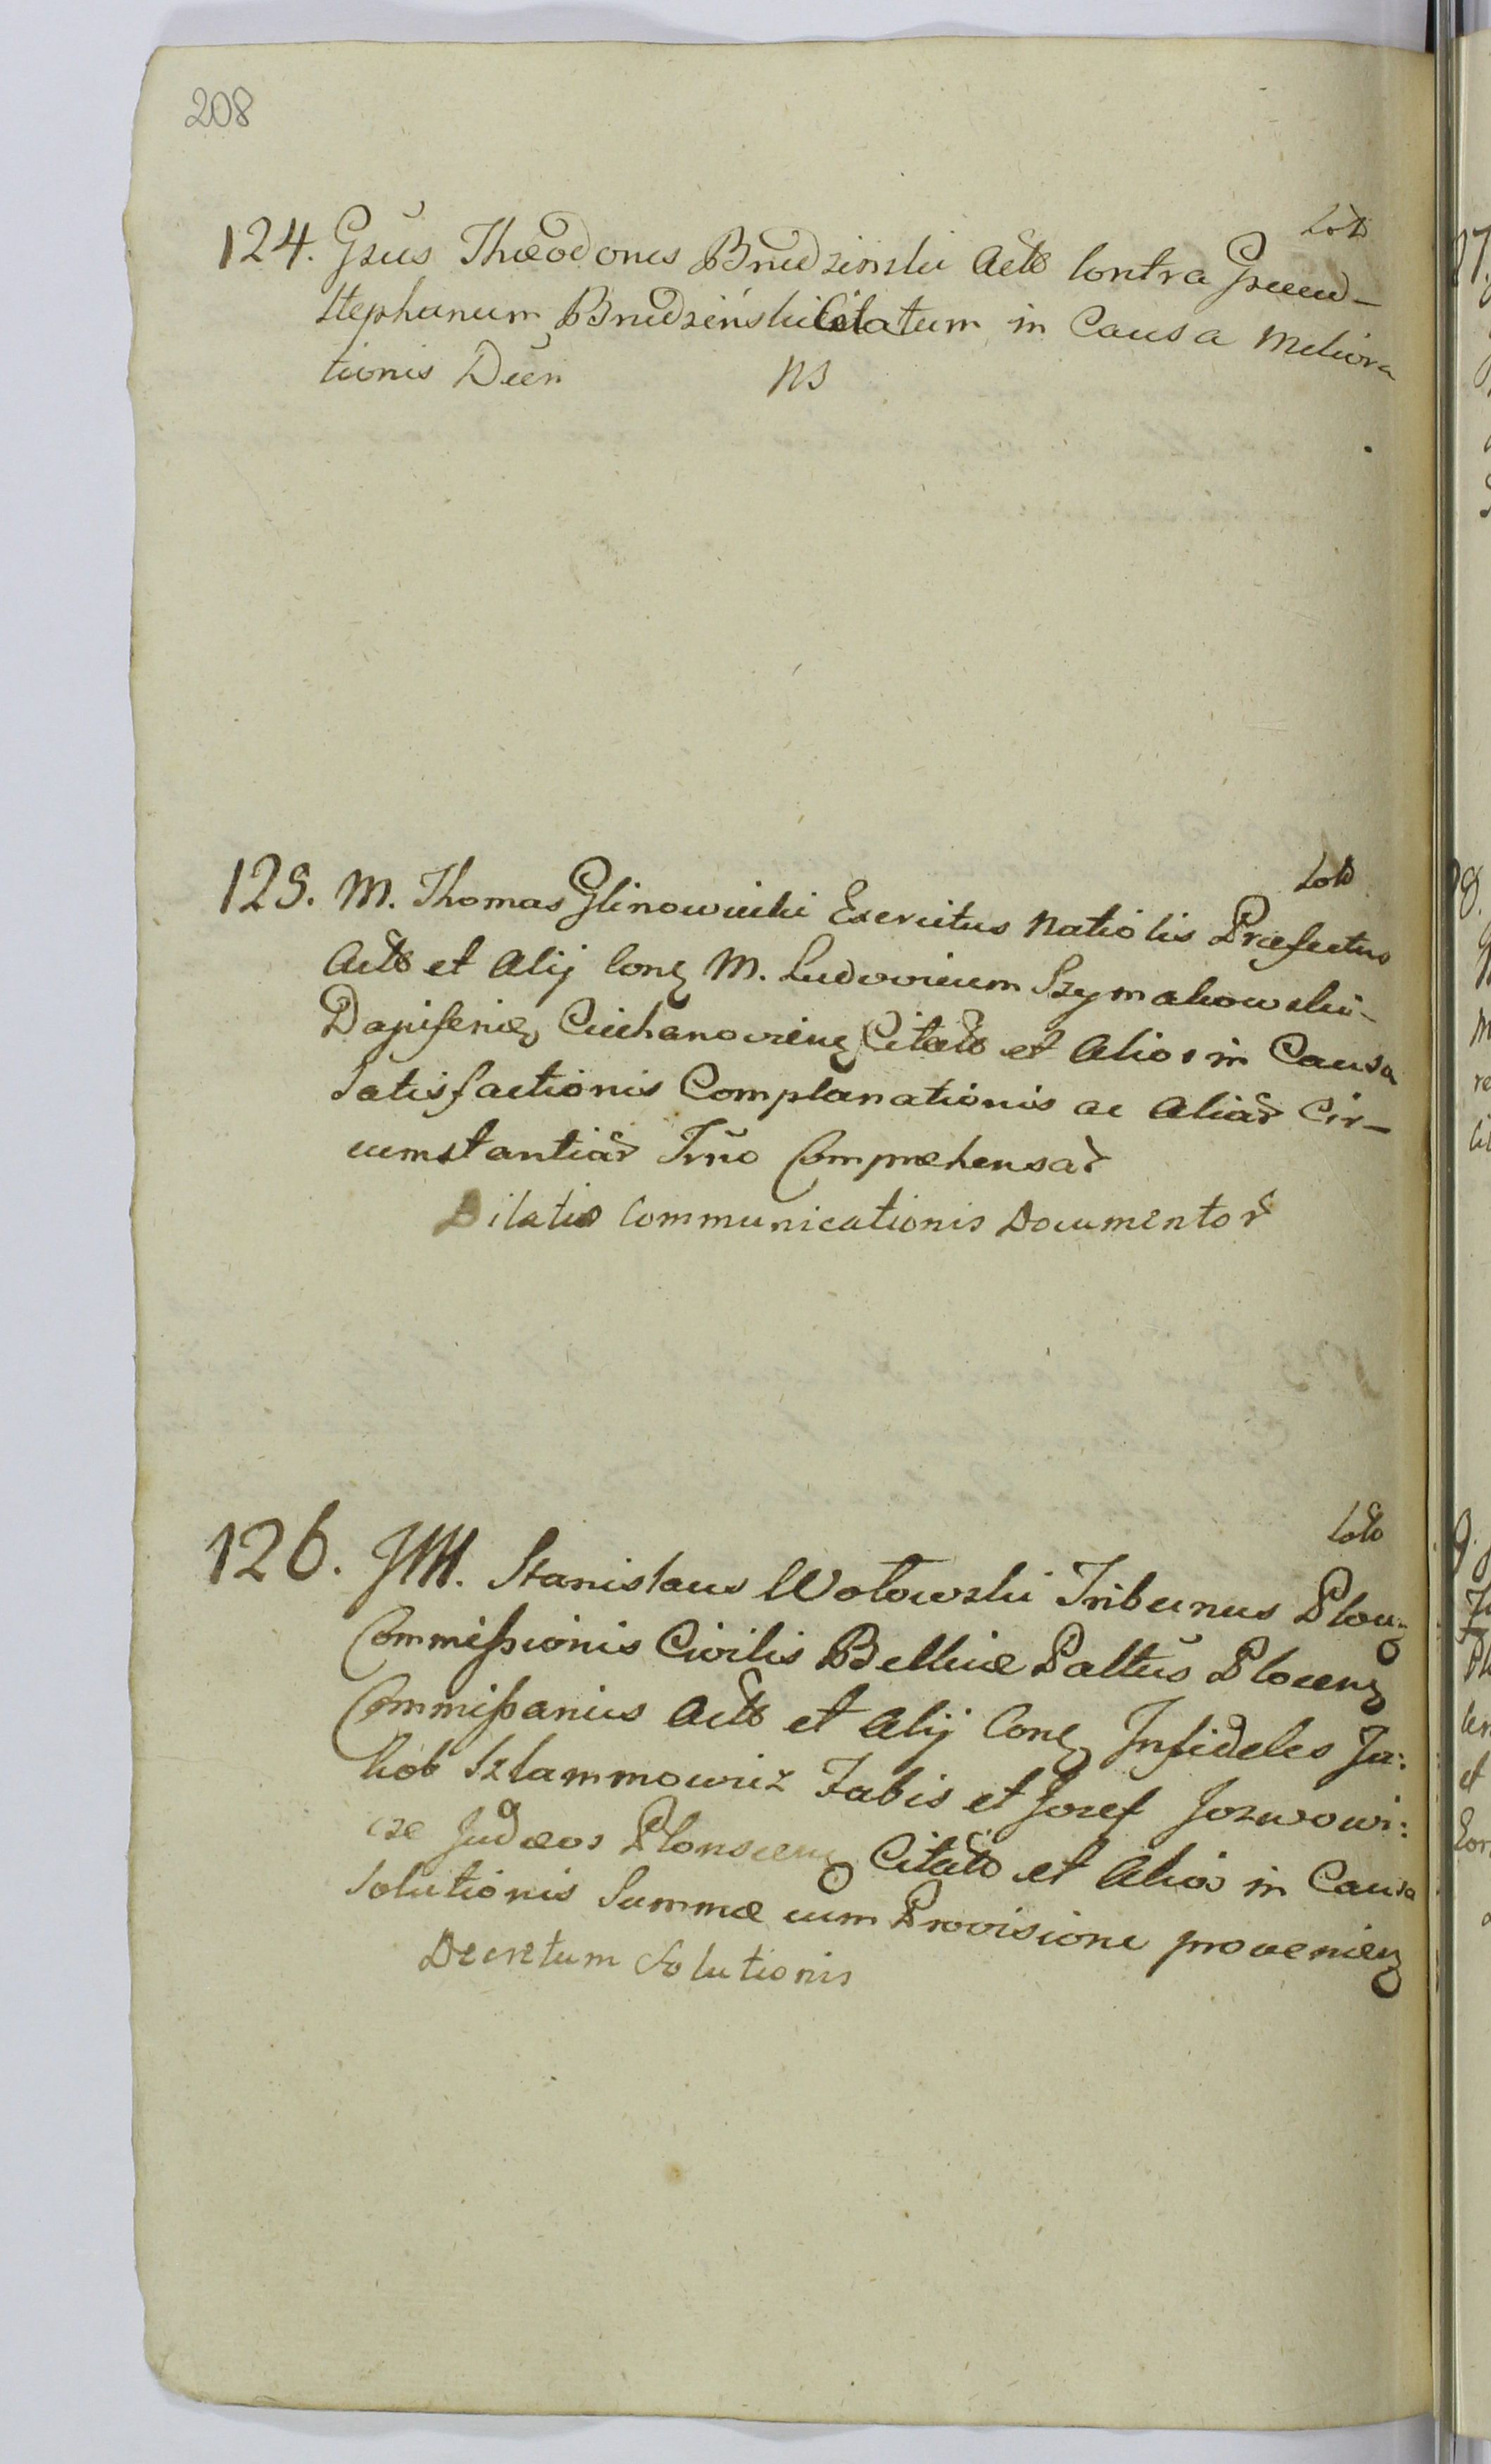 208
Loto
124. Gsūs Theodorus Brudzinski Acto Contra Gsuend-
Stephanum Brudzinski Citatum in Causa Meliora
tionis Dēēn NS
Loto
125. M. Thomas Glinowiecki Exercitus Natiolis Præfectus
Acto et Alij Conz M. Ludovicum Szymakowski-
Dapiferū Ciechanoviens Citato et Alios in Causa
Satisfactionis Complanationis ac Aliar Cir-
cumstantiar Trño Compræhensar
Dilatio Communicationis Documentor
Loto
126. JM. Stanislaus Wołowski Tribunus Ploc:
Commissionis Civilis Bellicæ Paltūs Plocens
Commissarius Acto et Alij Conz Infideles Ja:
kob Szlammowicz Fabis et Josef Jozwowi:
cze Judæos Plonscens Citato et Alios in Causa
Solutionis Summæ cum Provisione provenien
Decretum Solutionis